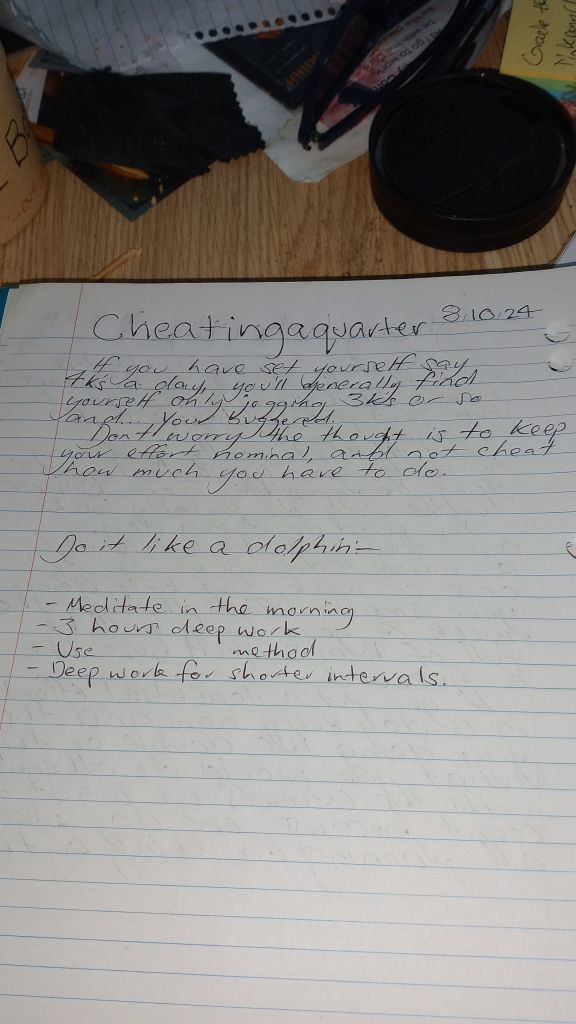 Grade the
B
Cheatingaquarter 8.10.24
If you have set yourself say
4ks a day, you'll generally find
yourself only jogging 3ks or so
and... Your buggered.
Dont worry the thought is to keep
your effort nominal, and not cheat
how much you have to do.
Do it like a dolphin:-
- Meditate in the morning
- 3 hours deep work
- Use method
- Deep work for shorter intervals.